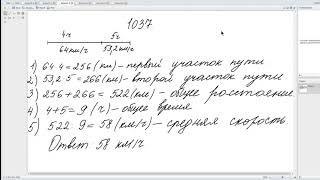 1037
4ч 5ч
64км/ч 53,2км/ч
1) 64·4=256 (км) - первый участок пути
2) 53,2·5=266 (км) - второй участок пути
3) 256+266=522 (км) - общее расстояние
4) 4+5=9 (ч) - общее время
5) 522:9=58 (км/ч) - средняя скорость.
Ответ 58 км/ч